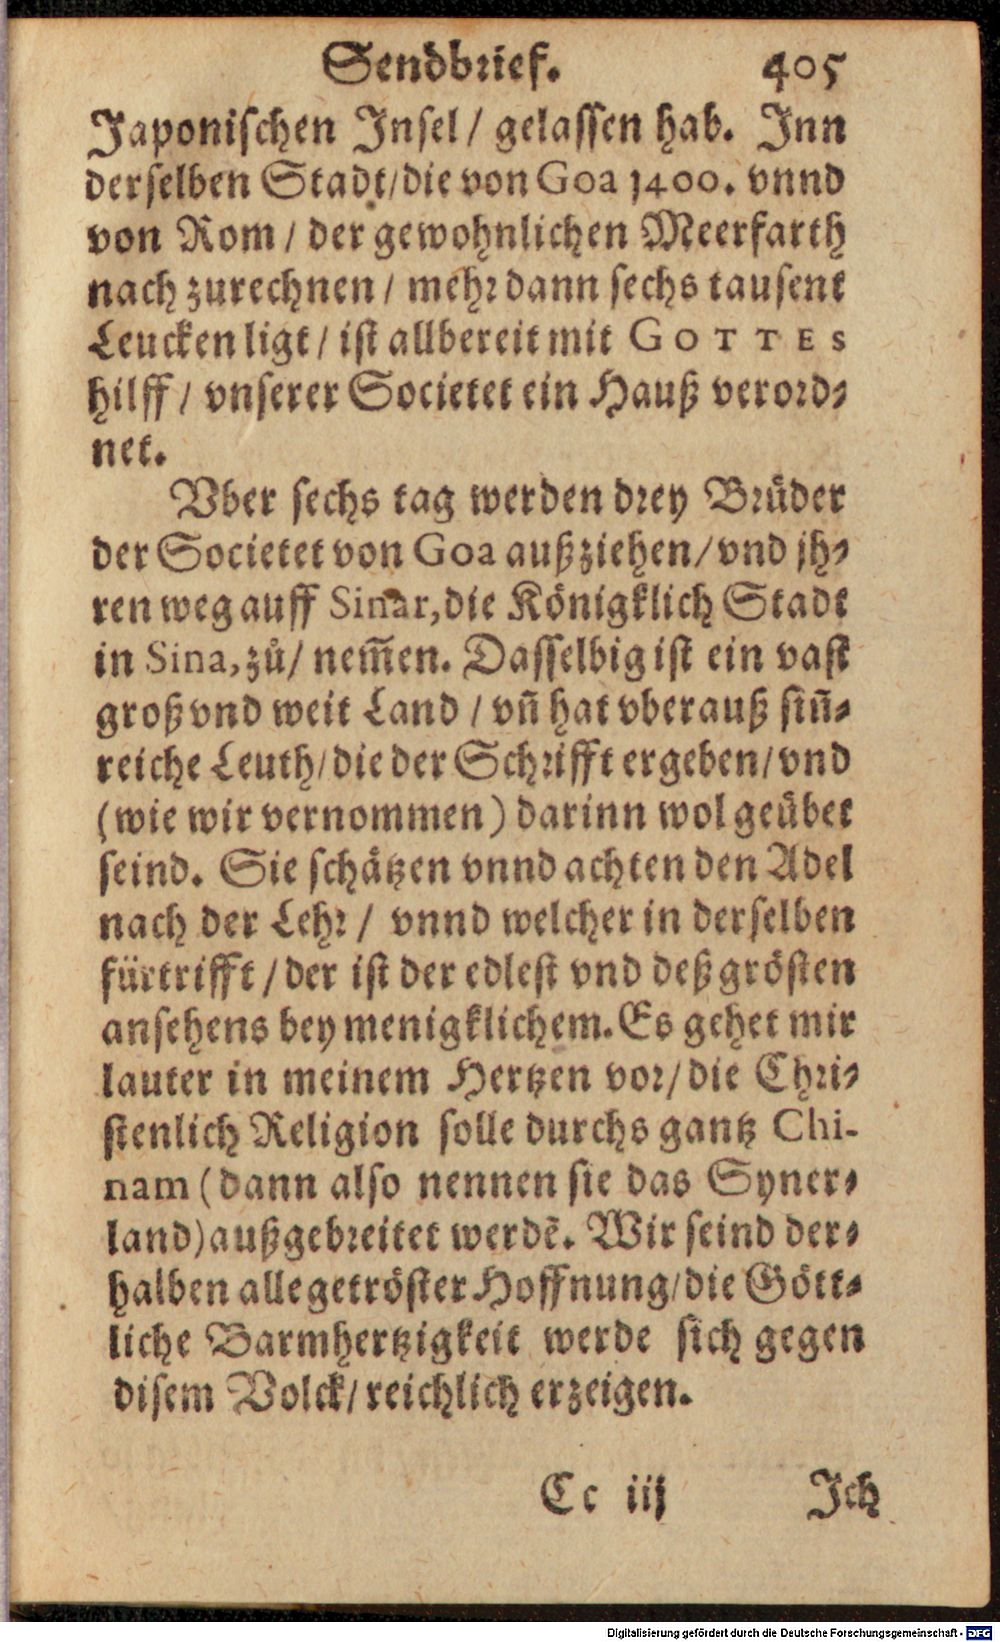 Sendbrief. 405
Japonischen Insel/ gelassen hab. Inn
derselben Stadt/die von Goa 1400. vnnd
von Rom / der gewohnlichen Meerfarth
nach zurechnen / mehr dann sechs tausent
Leucken ligt / ist allbereit mit GOTTES
hilff / vnserer Societet ein Hauß verord-
net.
Vber sechs tag werden drey Brüder
der Societet von Goa außziehen/vnd jh-
ren weg auff Sinar,die Königklich Stadt
in Sina,zů/ nem̃en. Dasselbig ist ein vast
groß vnd weit Land / vñ hat vberauß siñ-
reiche Leuth/die der Schrifft ergeben/vnd
(wie wir vernommen) darinn wol geübet
seind. Sie schätzen vnnd achten den Adel
nach der Lehr / vnnd welcher in derselben
fürtrifft / der ist der edlest vnd deß grösten
ansehens bey menigklichem. Es gehet mir
lauter in meinem Hertzen vor/die Chri-
stenlich Religion solle durchs gantz Chi-
nam (dann also nennen sie das Syner-
land)außgebreitet werdẽ. Wir seind der-
halben alle getröster Hoffnung/die Gött-
liche Barmhertzigkeit werde sich gegen
disem Volck/reichlich erzeigen.
Cc iij Ich
Digitalisierung gefördert durch die Deutsche Forschungsgemeinschaft - DFG